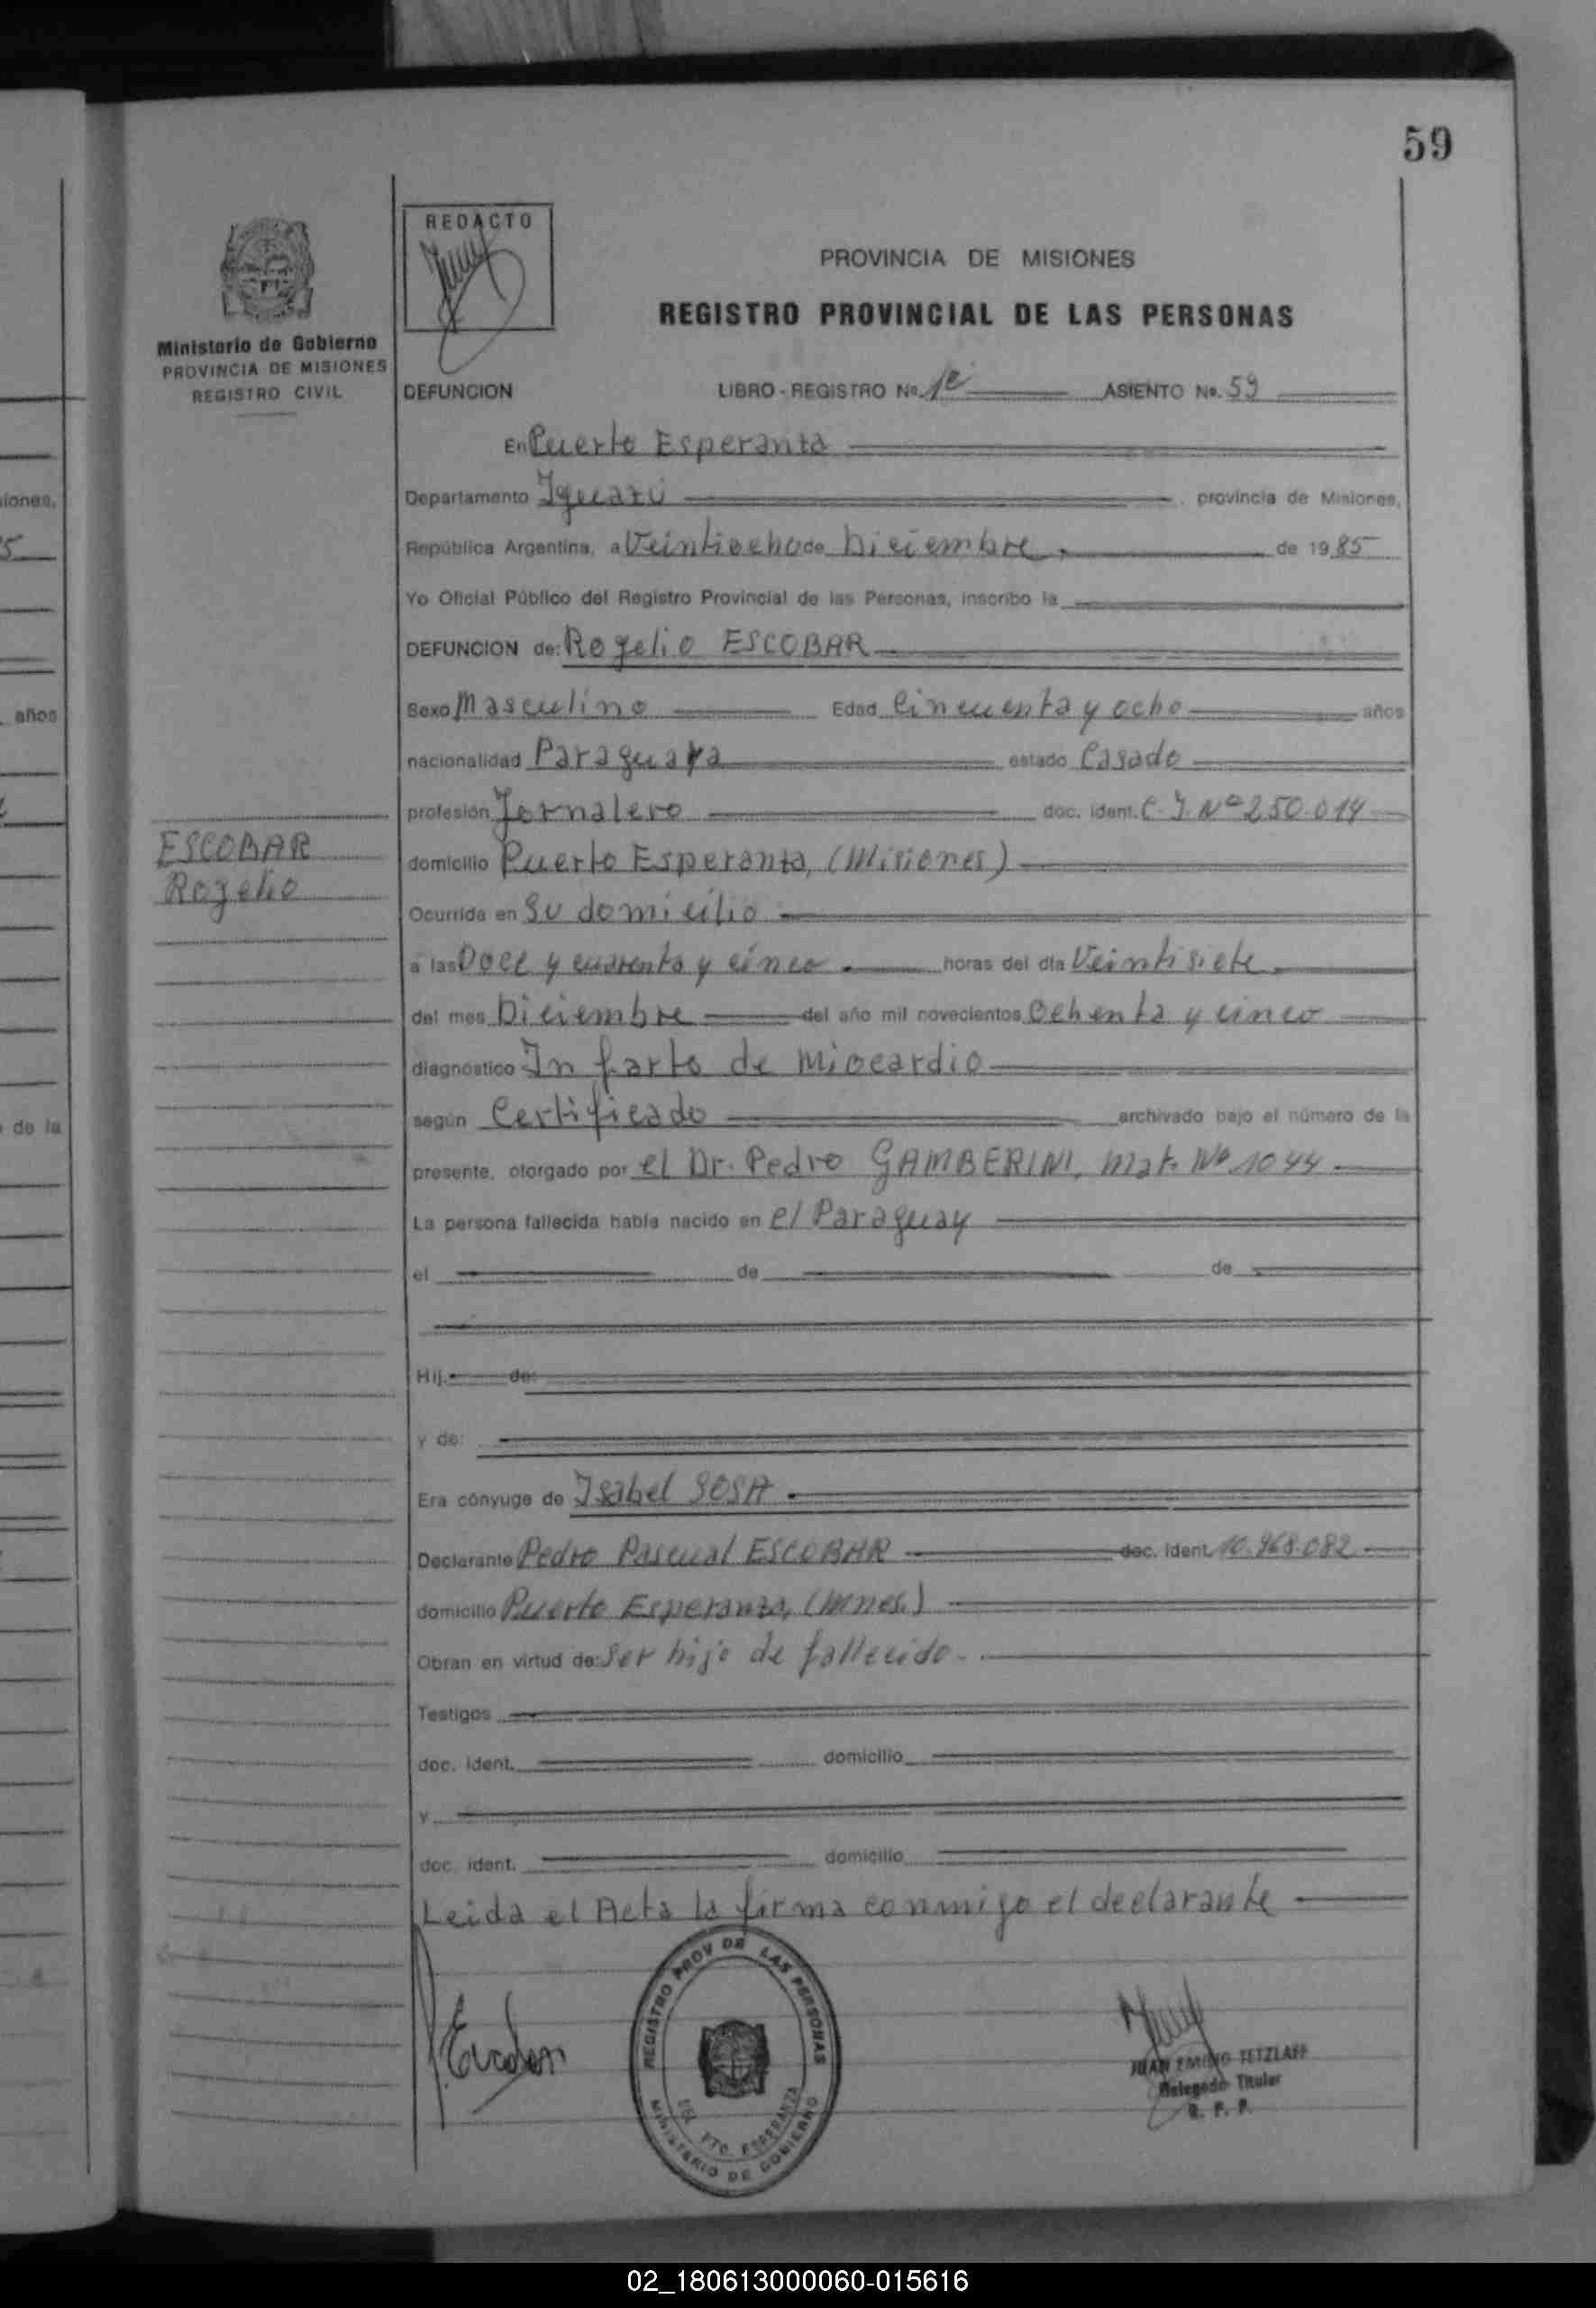 59
REDACTO
Ministerio de Gobierno
PROVINCIA DE MISIONES
REGISTRO CIVIL
PROVINCIA DE MISIONES
REGISTRO PROVINCIAL DE LAS PERSONAS
DEFUNCION LIBRO - REGISTRO No. 1º ASIENTO No. 59
En Puerto Esperanza
Departamento Iguazú provincia de Misiones,
República Argentina, a Veintiocho de Diciembre de 1985
Yo Oficial Público del Registro Provincial de las Personas, inscribo la
DEFUNCION de: Rogelio ESCOBAR
Sexo Masculino Edad Cincuenta y ocho años
nacionalidad Paraguaya estado Casado
profesión Jornalero doc. ident. C.I. Nº 250.014
domicilio Puerto Esperanza, (Misiones)
ESCOBAR
Rogelio
Ocurrida en Su domicilio
a las Doce y cuarenta y cinco horas del día Veintisiete
del mes Diciembre del año mil novecientos Ochenta y cinco
diagnóstico Infarto de Miocardio
según Certificado archivado bajo el número de la
presente, otorgado por el Dr. Pedro GAMBERINI, Mat. Nº 1044
La persona fallecida había nacido en el Paraguay
el de de
Hij de:
y de:
Era cónyuge de Isabel SOSA
Declarante Pedro Pascual ESCOBAR doc. ident. 10.968.082
domicilio Puerto Esperanza, (Mnes.)
Obran en virtud de: Ser hijo de fallecido.
Testigos
doc. ident. domicilio
y
doc. ident. domicilio
Leida el Acta la firma conmigo el declarante
REGISTRO PROV DE LAS PERSONAS
PTO. ESPERANZA
MINISTERIO DE GOBIERNO
JUAN EMILIO TETZLAFF
Delegado Titular
R. P. P.
02_180613000060-015616